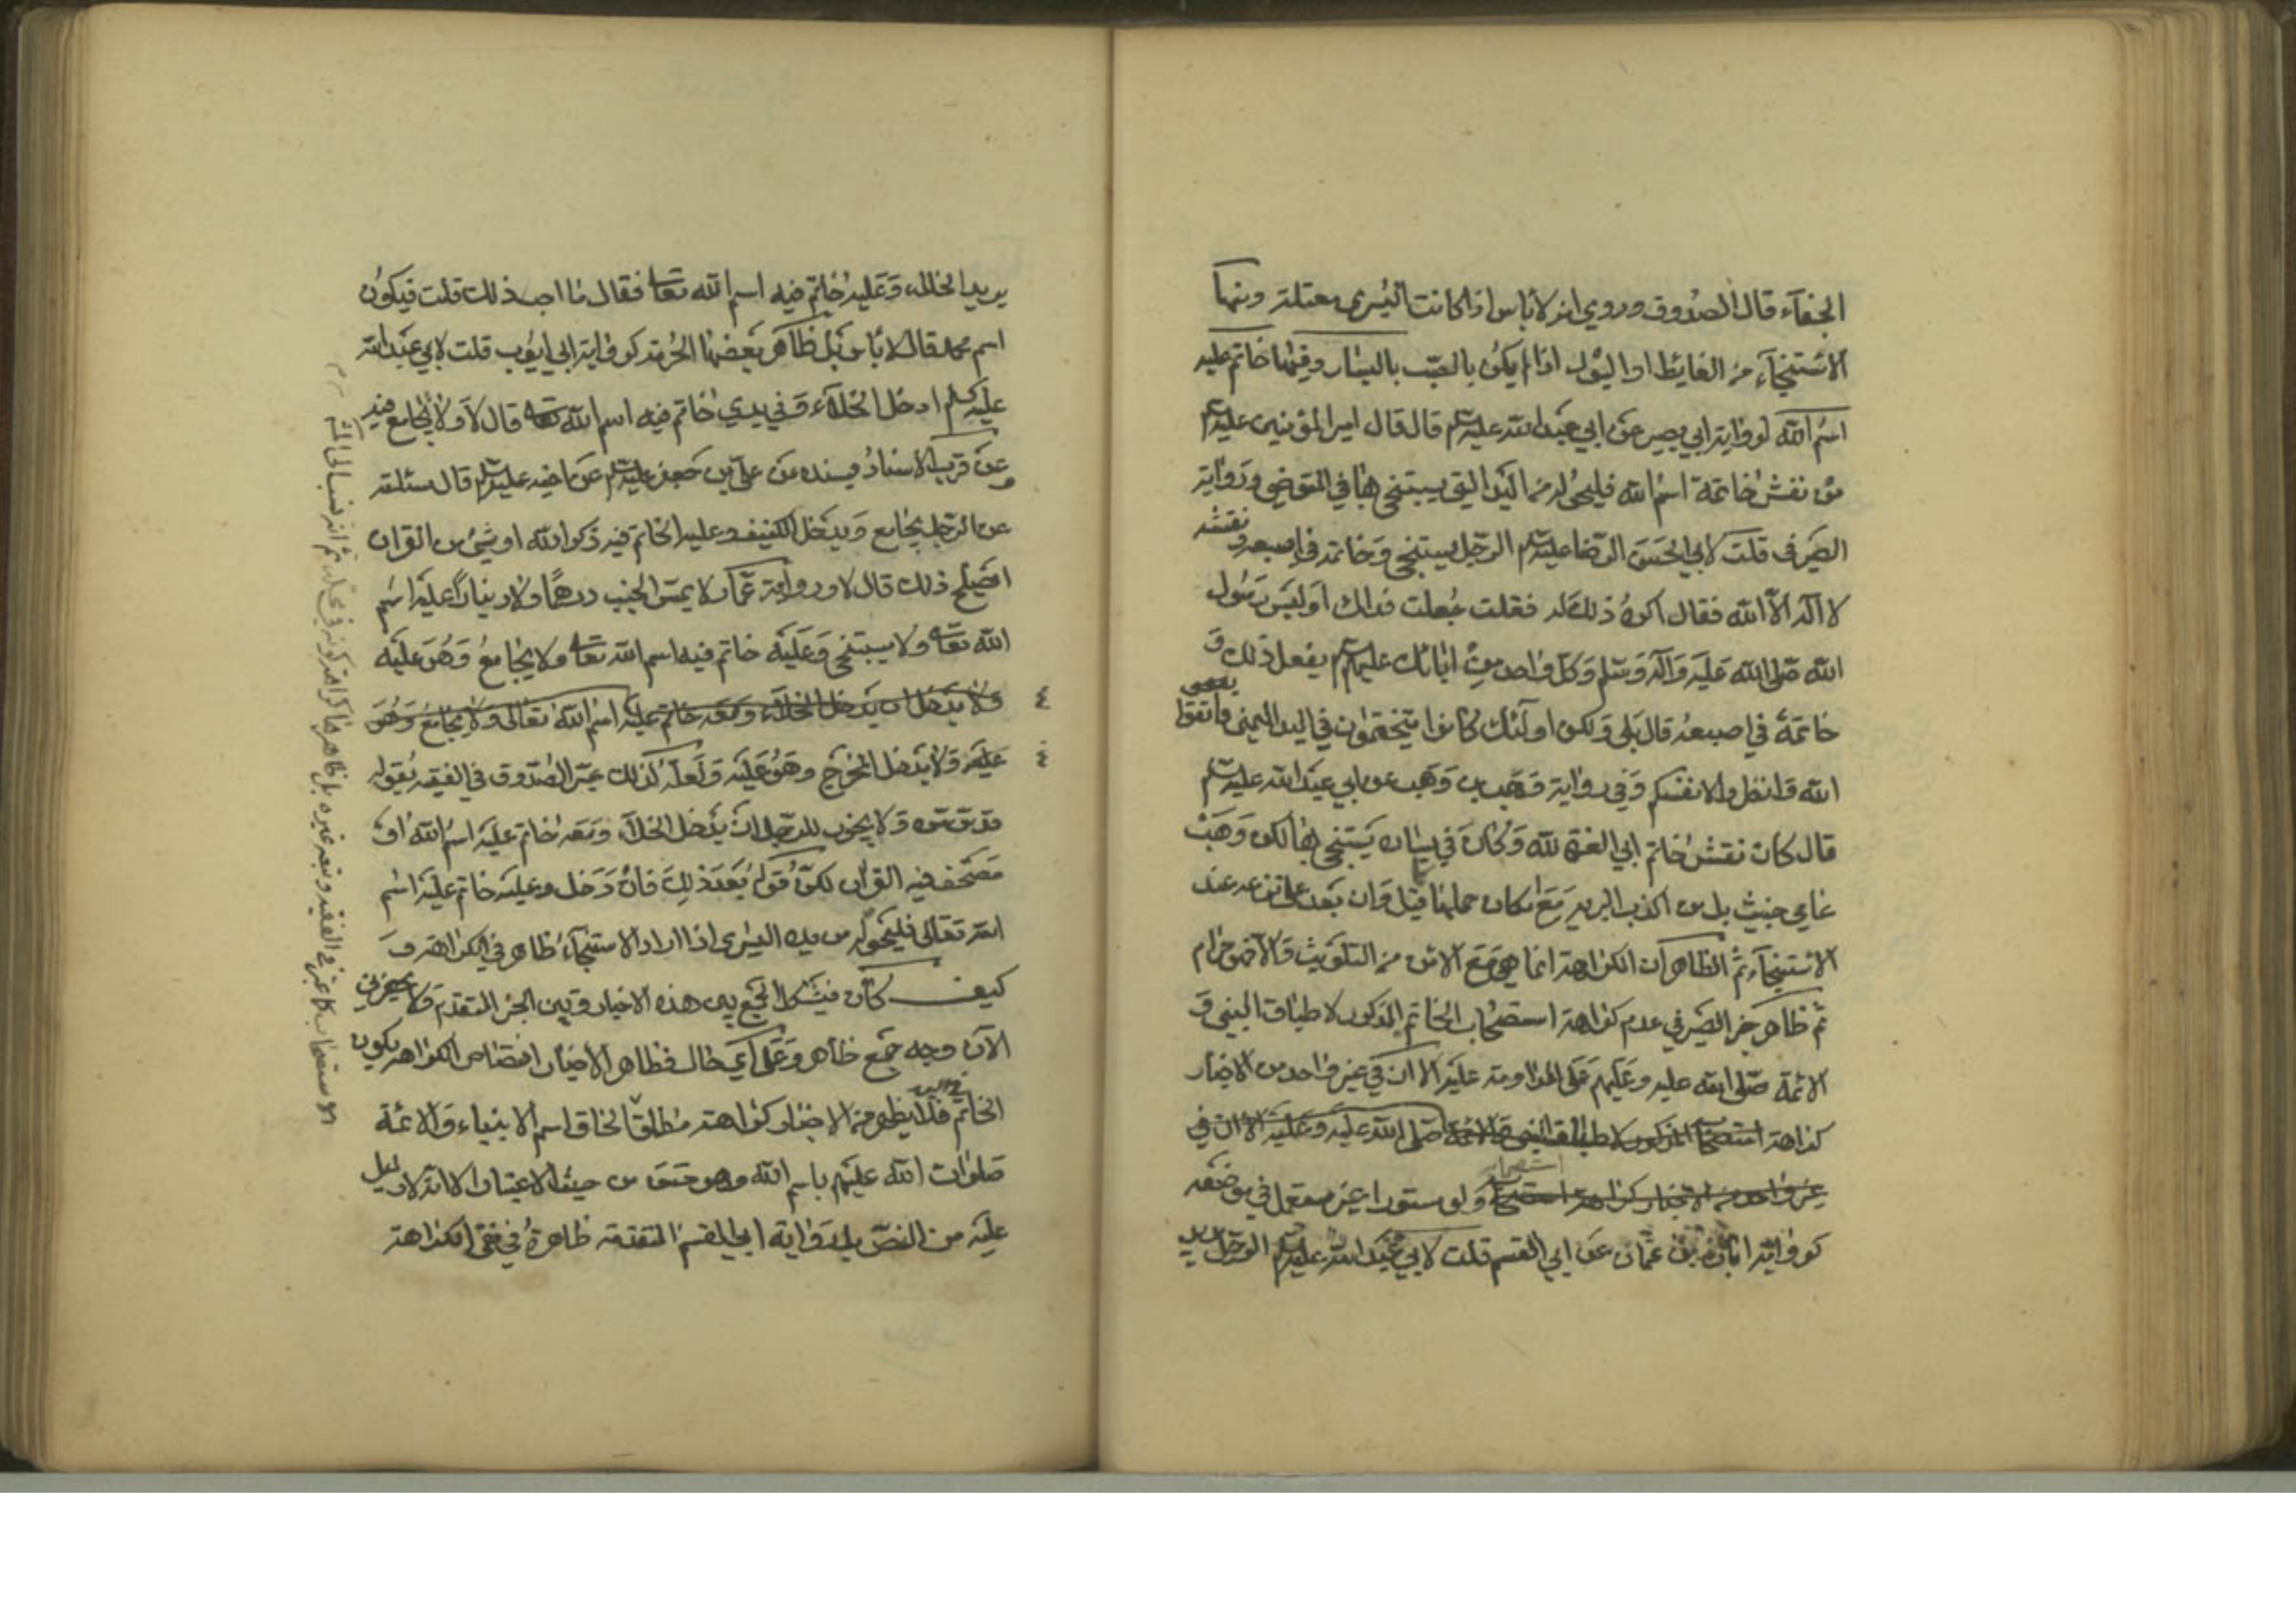 الجفاء قال الصدوق وروي انه لاباس اذا كانت اليسرى معتلة ومنها
الاستنجاء من الغايط او البول اذا لم يكن بالصب باليسار وفيها خاتم عليه
اسم الله لرواية ابي بصير عن ابي عبدالله عليه السلم قال قال امير المؤمنين عليه السلم
من نقش خاتمه اسم الله فليحوله من اليد التي يستنجي بها في المتوضي ورواية
الصيرفي قلت لابي الحسن الرضا عليه السلم الرجل يستنجي وخاتمه في اصبعه ونقشه
لا اله الا الله فقال اكره ذلك له فقلت جعلت فداك اوليس رسول
الله صلى الله عليه وآله وسلم وكل واحد من ابائك عليهم السلم يفعل ذلك و
خاتمه في اصبعه قال بلى ولكن اولئك كانوا يتختمون في اليد اليمنى فاتقوا
الله وانظروا لانفسكم وفي رواية وهب بن وهب عن ابي عبدالله عليه السلم
قال كان نقش خاتم ابي العزة لله وكان في يساره يستنجي بها لكن وهب
عامي خبيث بل من اكذب البرية مع امكان حملها قيل وان بعد على نزعه عند
الاستنجاء ثم الظاهر ان الكراهة انما هي مع الامن من التلويث والا فهو حرام
ثم ظاهر خبر الصيرفي عدم كراهة استصحاب الخاتم المذكور لاطباق النبي و
الائمة صلى الله عليه وعليهم على المداومة عليه الا ان في غير واحد من الاخبار
كراهة استصحاب المذكور لاطباق النبي والائمة صلى الله عليه وعليه الا ان في
غير واحد من الاخبار كراهة استصحابه ولو مستورا غير مستعمل في موضعه
كرواية ابان بن عثمان عن ابي القسم قلت لابي عبدالله عليه السلم الرجل يريد
يريد الخلاء وعليه خاتم فيه اسم الله تعا فقال ما احب ذلك قلت فيكون
اسم محمد قال لا باس بل ظاهر بعضها الحرمة كرواية ابي ايوب قلت لابي عبدالله
عليه السلم ادخل الخلاء وفي يدي خاتم فيه اسم الله تعا قال لا ولا تجامع فيه
وعن قرب الاسناد بسنده عن علي بن جعفر عليه السلم عن اخيه عليه السلم قال سئلته
عن الرجل يجامع ويدخل الكنيف وعليه الخاتم فيه ذكر الله او شيء من القران
ايصلح ذلك قال لا ورواية عمار لا يمس الجنب درهما ولا دينارا عليه اسم
الله تعا ولا يستنجي وعليه خاتم فيه اسم الله تعا ولا يجامع وهو عليه
ولا يدخل ان يدخل الخلاء ومعه خاتم عليه اسم الله تعالى ولا يجامع وهو
عليه ولا يدخل المخرج وهو عليه ولعله لذلك عبر الصدوق في الفقيه بقوله
قدس سره ولا يجوز للرجل ان يدخل الخلاء ومعه خاتم عليه اسم الله او
مصحف فيه القران لكن قوله بعد ذلك فان دخل وعليه خاتم عليه اسم
الله تعالى فليحوله من يده اليسرى اذا اراد الاستنجاء ظاهر في الكراهة و
كيف كان فيشكل الجمع بين هذه الاخبار وبين الخبر المتقدم ولا يحضرني
الآن وجه جمع ظاهر وعلى اي حال فظاهر الاخبار اختصاص الكراهة بكون
الخاتم في اليد فلا يظهر من الاخبار كراهته مطلقا لحاق اسم الانبياء والائمة
صلوات الله عليهم باسم الله وهو حسن من حيث الاعتبار الا انه لا دليل
عليه من النص بل رواية ابي القسم المتقدمة ظاهرة في نفي الكراهة